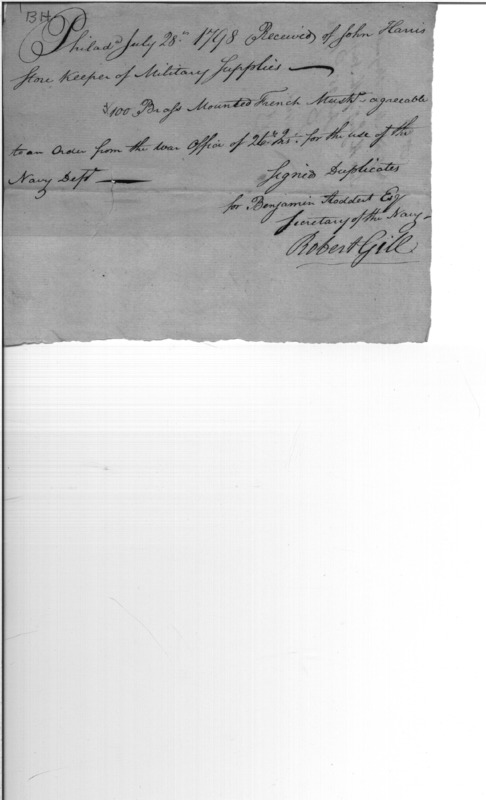 BH
Philad.ª July 28.th 1798 Received of John Harris
Store Keeper of Military Supplies —
100 Brass Mounted French Musk.ts agreeable
to an Order from the War Office of 26.th for the use of the
Navy Dept —
Signed Duplicates
for Benjamin Stoddert Esq
Secretary of the Navy
Robert Gill